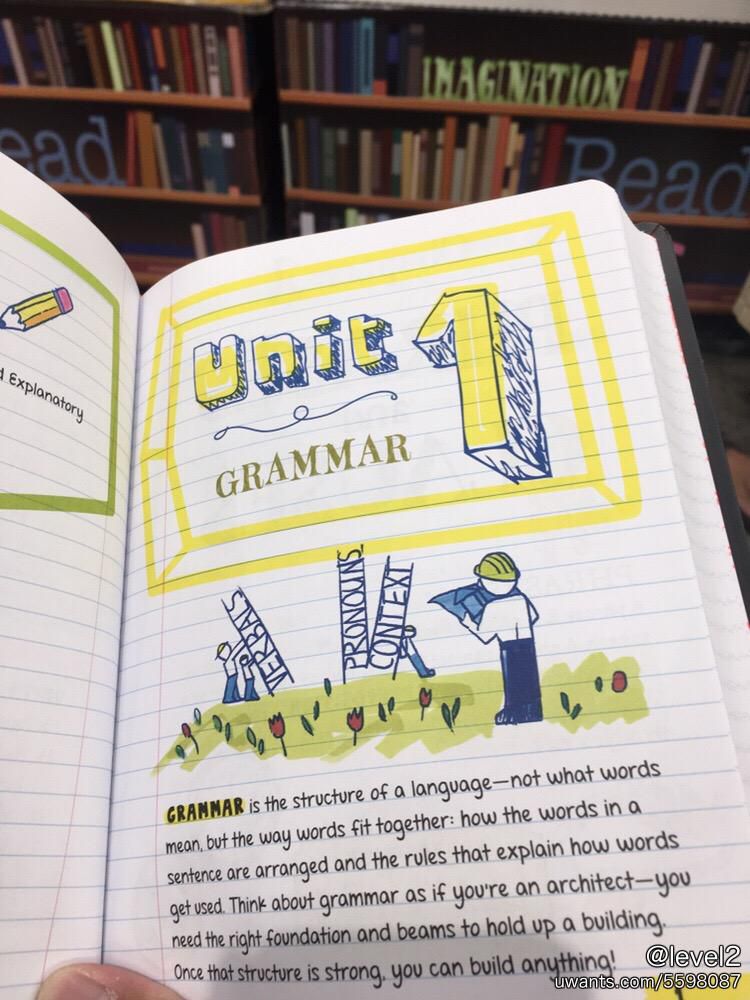 IMAGINATION
ead
Read
d Explanatory
Unit 1
GRAMMAR
VERBALS
PRONOUNS
CONTEXT
GRAMMAR is the structure of a language—not what words
mean, but the way words fit together: how the words in a
sentence are arranged and the rules that explain how words
get used. Think about grammar as if you're an architect—you
need the right foundation and beams to hold up a building.
Once that structure is strong, you can build anything!
@level2
uwants.com/5598087